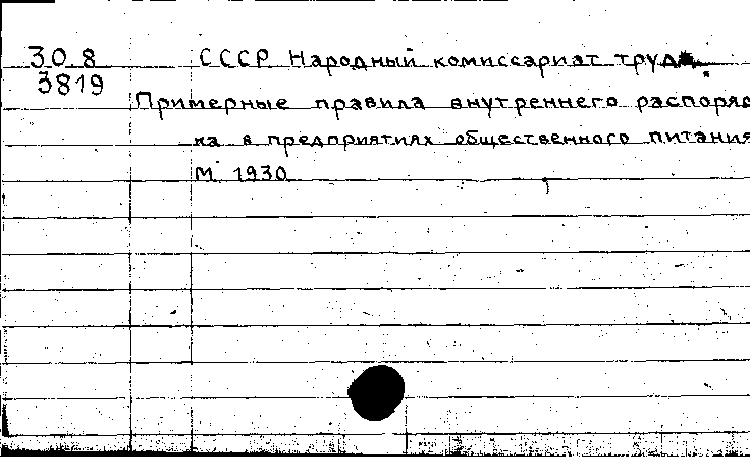 30.8 СССР. Народный комиссариат труда.
3819
Примерные правила внутреннего распоряд
ка в предприятиях общественного питания
М. 1930